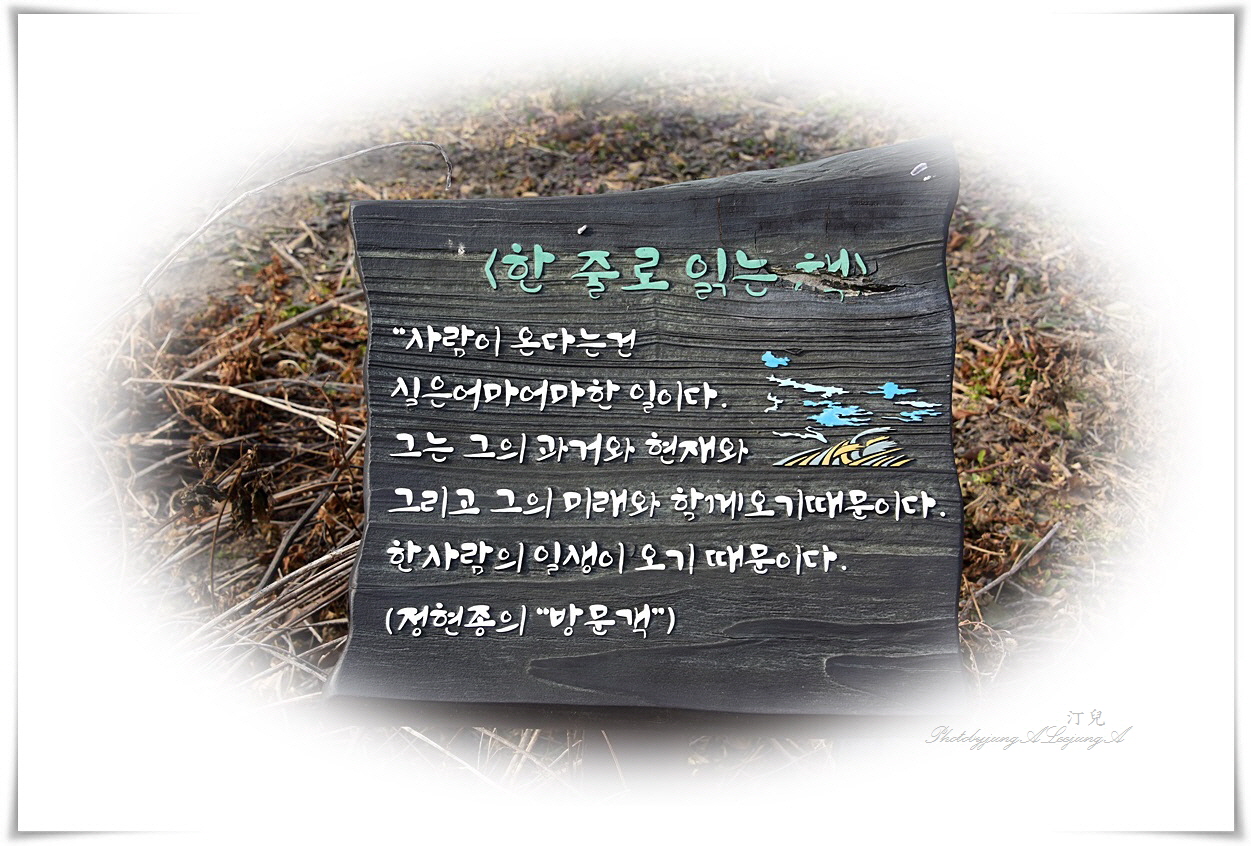 <한 줄로 읽는 책>
"사람이 온다는건
실은어마어마한 일이다.
그는 그의 과거와 현재와
그리고 그의 미래와 함께오기때문이다.
한사람의 일생이 오기 때문이다.
(정현종의 "방문객")
汀兒
PhotobyjungALeejungA